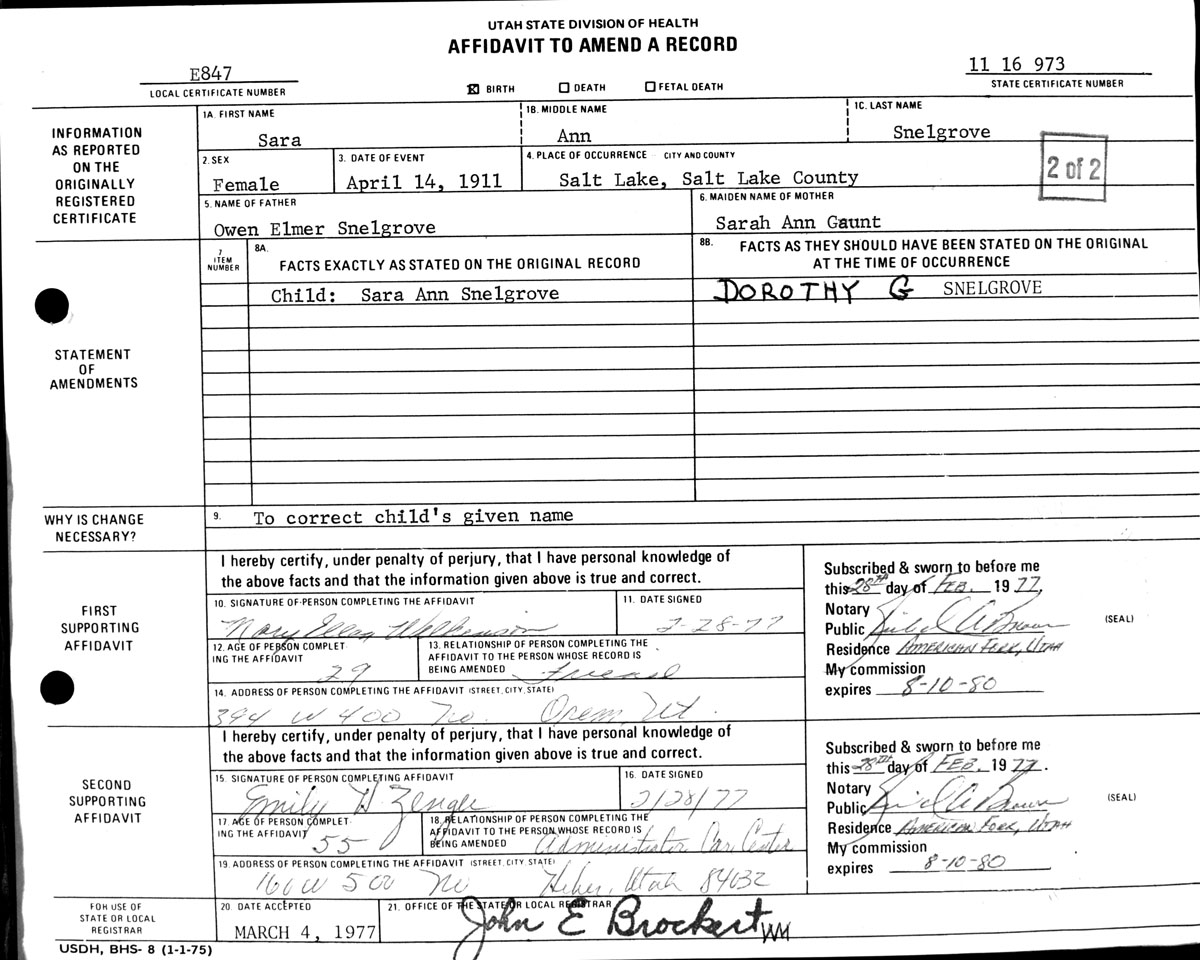 UTAH STATE DIVISION OF HEALTH
AFFIDAVIT TO AMEND A RECORD
E847
LOCAL CERTIFICATE NUMBER
☒ BIRTH ☐ DEATH ☐ FETAL DEATH
11 16 973
STATE CERTIFICATE NUMBER
INFORMATION AS REPORTED ON THE ORIGINALLY REGISTERED CERTIFICATE
1A. FIRST NAME 1B. MIDDLE NAME 1C. LAST NAME
Sara Ann Snelgrove
2 of 2
2. SEX 3. DATE OF EVENT 4. PLACE OF OCCURRENCE - CITY AND COUNTY
Female April 14, 1911 Salt Lake, Salt Lake County
5. NAME OF FATHER 6. MAIDEN NAME OF MOTHER
Owen Elmer Snelgrove Sarah Ann Gaunt
STATEMENT OF AMENDMENTS
7 ITEM NUMBER
8A. FACTS EXACTLY AS STATED ON THE ORIGINAL RECORD
8B. FACTS AS THEY SHOULD HAVE BEEN STATED ON THE ORIGINAL AT THE TIME OF OCCURRENCE
Child: Sara Ann Snelgrove DOROTHY G SNELGROVE
WHY IS CHANGE NECESSARY?
9. To correct child's given name
FIRST SUPPORTING AFFIDAVIT
I hereby certify, under penalty of perjury, that I have personal knowledge of
the above facts and that the information given above is true and correct.
10. SIGNATURE OF PERSON COMPLETING THE AFFIDAVIT 11. DATE SIGNED
Mary Ellen Wilkinson 2-28-77
12. AGE OF PERSON COMPLETING THE AFFIDAVIT 29
13. RELATIONSHIP OF PERSON COMPLETING THE AFFIDAVIT TO THE PERSON WHOSE RECORD IS BEING AMENDED Friend
14. ADDRESS OF PERSON COMPLETING THE AFFIDAVIT (STREET, CITY, STATE)
394 W 400 No. Orem, Ut.
Subscribed & sworn to before me
this 28TH day of FEB. 1977,
Notary
Public A Brown
(SEAL)
Residence AMERICAN FORK, UTAH
My commission
expires 8-10-80
SECOND SUPPORTING AFFIDAVIT
I hereby certify, under penalty of perjury, that I have personal knowledge of
the above facts and that the information given above is true and correct.
15. SIGNATURE OF PERSON COMPLETING AFFIDAVIT 16. DATE SIGNED
Emily H Zenger 2/28/77
17. AGE OF PERSON COMPLETING THE AFFIDAVIT 55
18. RELATIONSHIP OF PERSON COMPLETING THE AFFIDAVIT TO THE PERSON WHOSE RECORD IS BEING AMENDED Administrator Car Center
19. ADDRESS OF PERSON COMPLETING THE AFFIDAVIT (STREET, CITY, STATE)
160 W 500 No Heber, Utah 84032
Subscribed & sworn to before me
this 28TH day of FEB. 1977.
Notary
Public A Brown
(SEAL)
Residence AMERICAN FORK, UTAH
My commission
expires 8-10-80
FOR USE OF STATE OR LOCAL REGISTRAR
20. DATE ACCEPTED 21. OFFICE OF THE STATE OR LOCAL REGISTRAR
MARCH 4, 1977 John E Brockert
USDH, BHS- 8 (1-1-75)